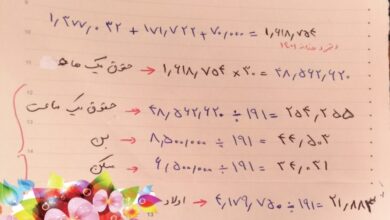 ۱,۳۷۷,۰۳۲ + ۱۷۱,۷۲۲ + ۷۰,۰۰۰ = ۱,۶۱۸,۷۵۴
۱۴۰۱
حقوق یک ماهه → ۱,۶۱۸,۷۵۴ × ۳۰ = ۴۸,۵۶۲,۶۲۰
حقوق یک ساعت → ۴۸,۵۶۲,۶۲۰ ÷ ۱۹۱ = ۲۵۴,۲۵۵
بن → ۸,۵۰۰,۰۰۰ ÷ ۱۹۱ = ۴۴,۵۰۳
مسکن → ۶,۵۰۰,۰۰۰ ÷ ۱۹۱ = ۳۴,۰۳۱
اولاد → ۴,۱۷۹,۷۵۰ ÷ ۱۹۱ = ۲۱,۸۸۳